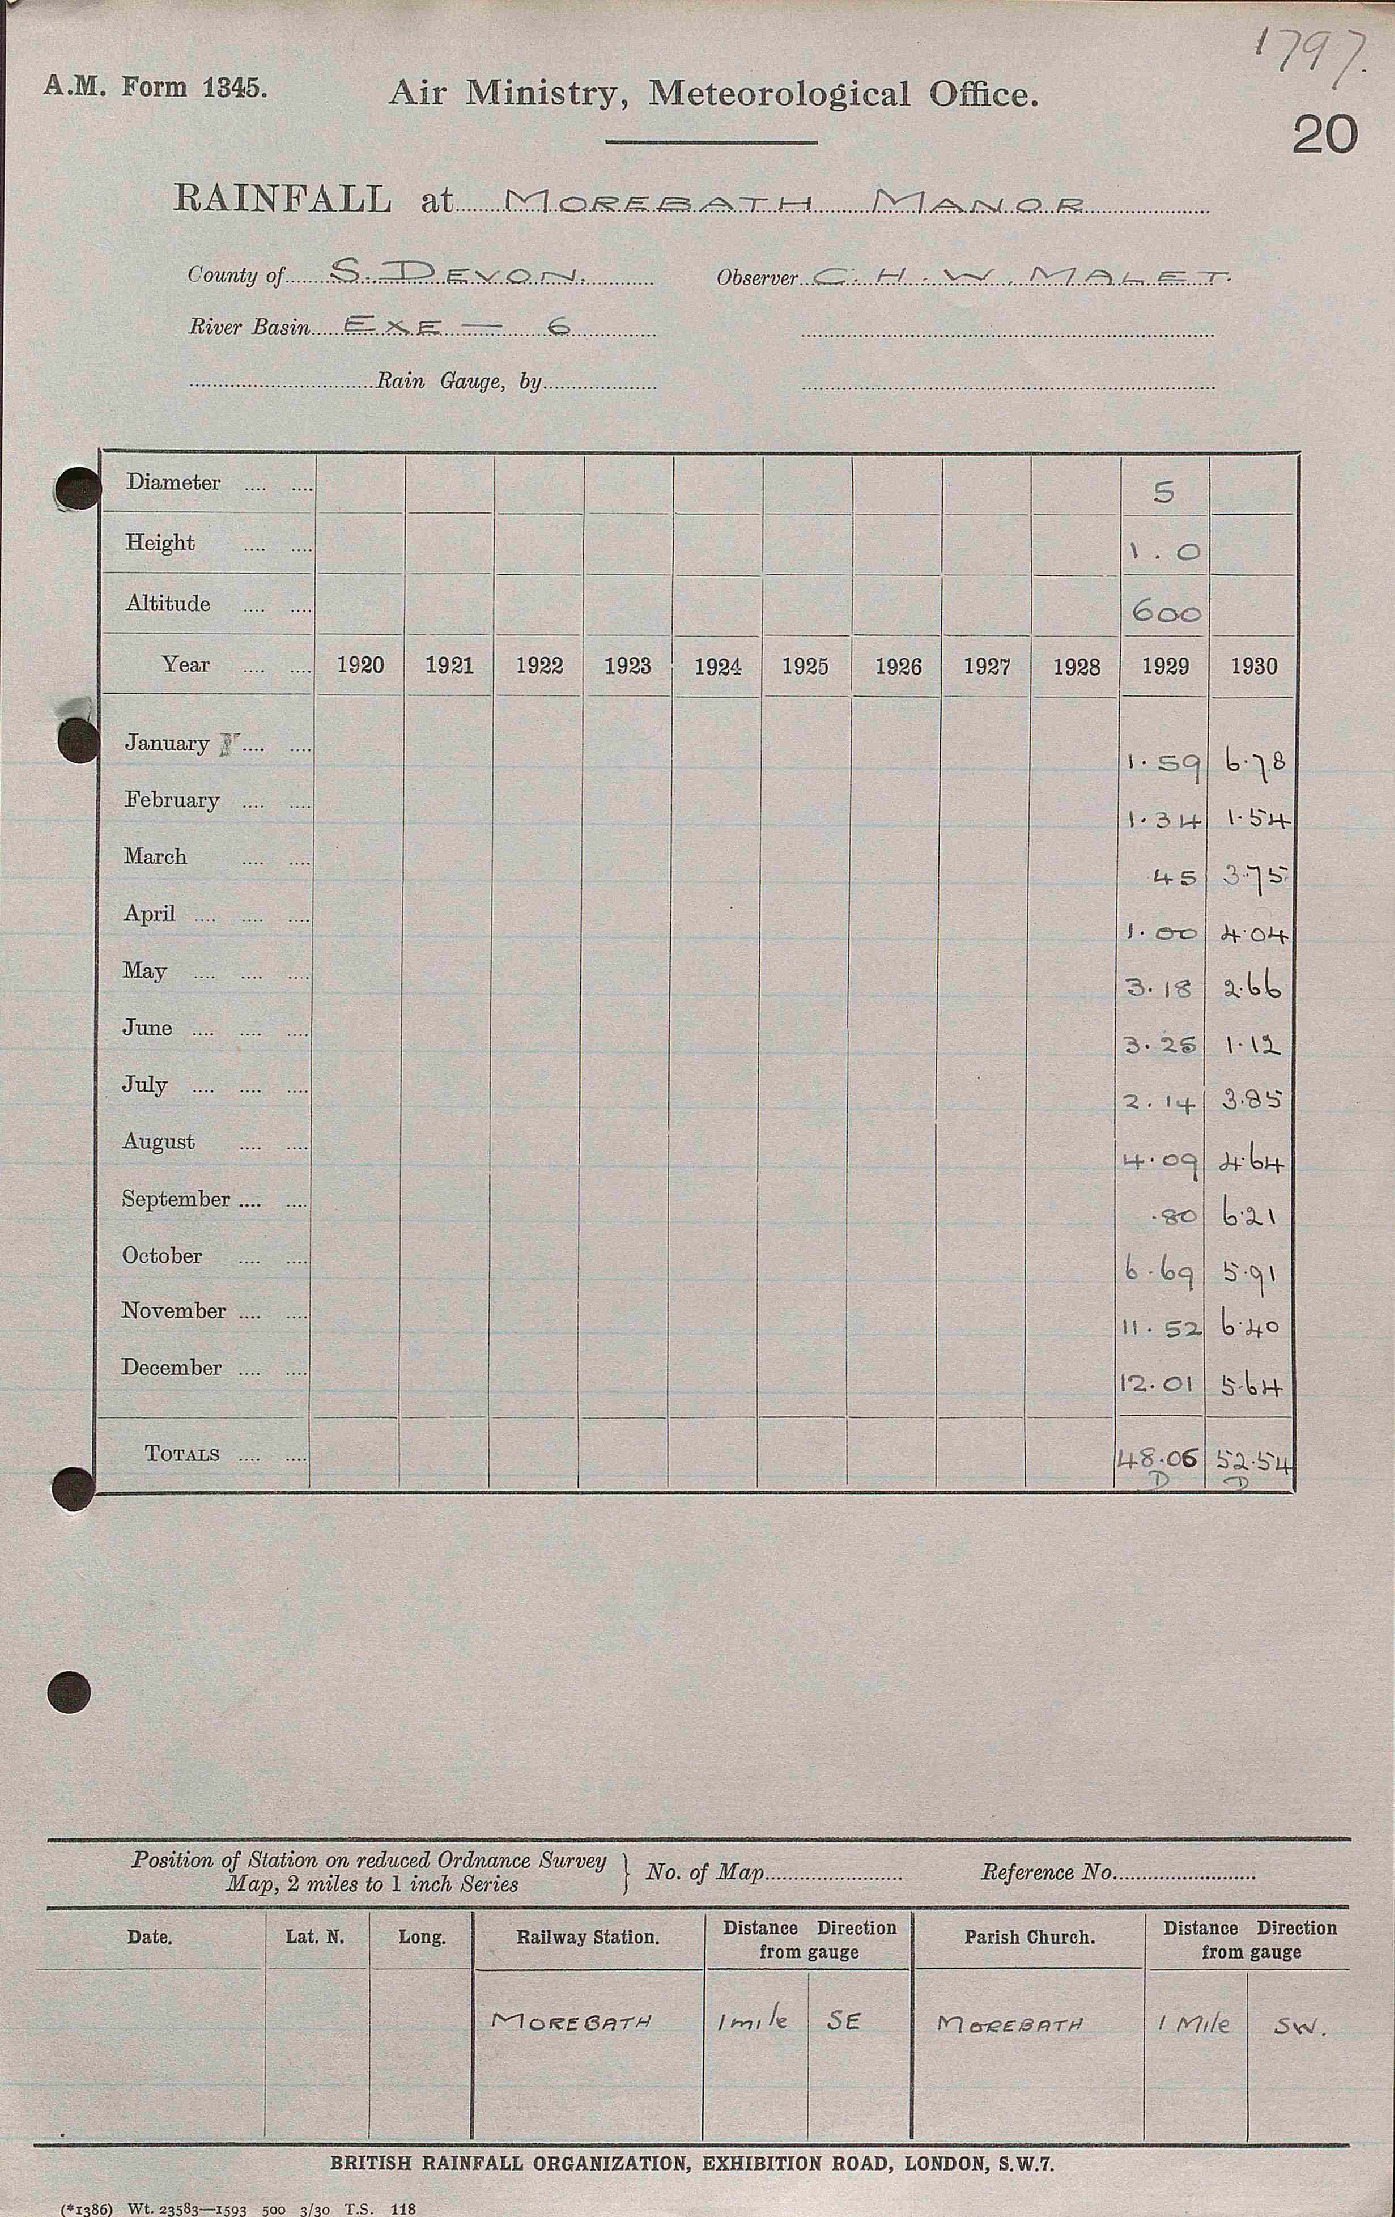 1797.
A.M. Form 1345. Air Ministry, Meteorological Office.
20
RAINFALL at MOREBATH MANOR
County of S. DEVON. Observer C. H. W. MALET.
River Basin EXE — 6
Rain Gauge, by
Diameter 5
Height 1.0
Altitude 600
Year 1920 1921 1922 1923 1924 1925 1926 1927 1928 1929 1930
January 1.59 6.78
February 1.34 1.54
March .45 3.75
April 1.00 4.04
May 3.18 2.66
June 3.25 1.12
July 2.14 3.85
August 4.09 4.64
September .80 6.21
October 6.69 5.91
November 11.52 6.40
December 12.01 5.64
TOTALS 48.06 52.54
D D
Position of Station on reduced Ordnance Survey
Map, 2 miles to 1 inch Series } No. of Map Reference No.
Date. Lat. N. Long. Railway Station. Distance Direction from gauge Parish Church. Distance Direction from gauge
MOREBATH 1 mile SE MOREBATH 1 Mile SW.
BRITISH RAINFALL ORGANIZATION, EXHIBITION ROAD, LONDON, S.W.7.
(*1386) Wt. 23583—1593 500 3/30 T.S. 118